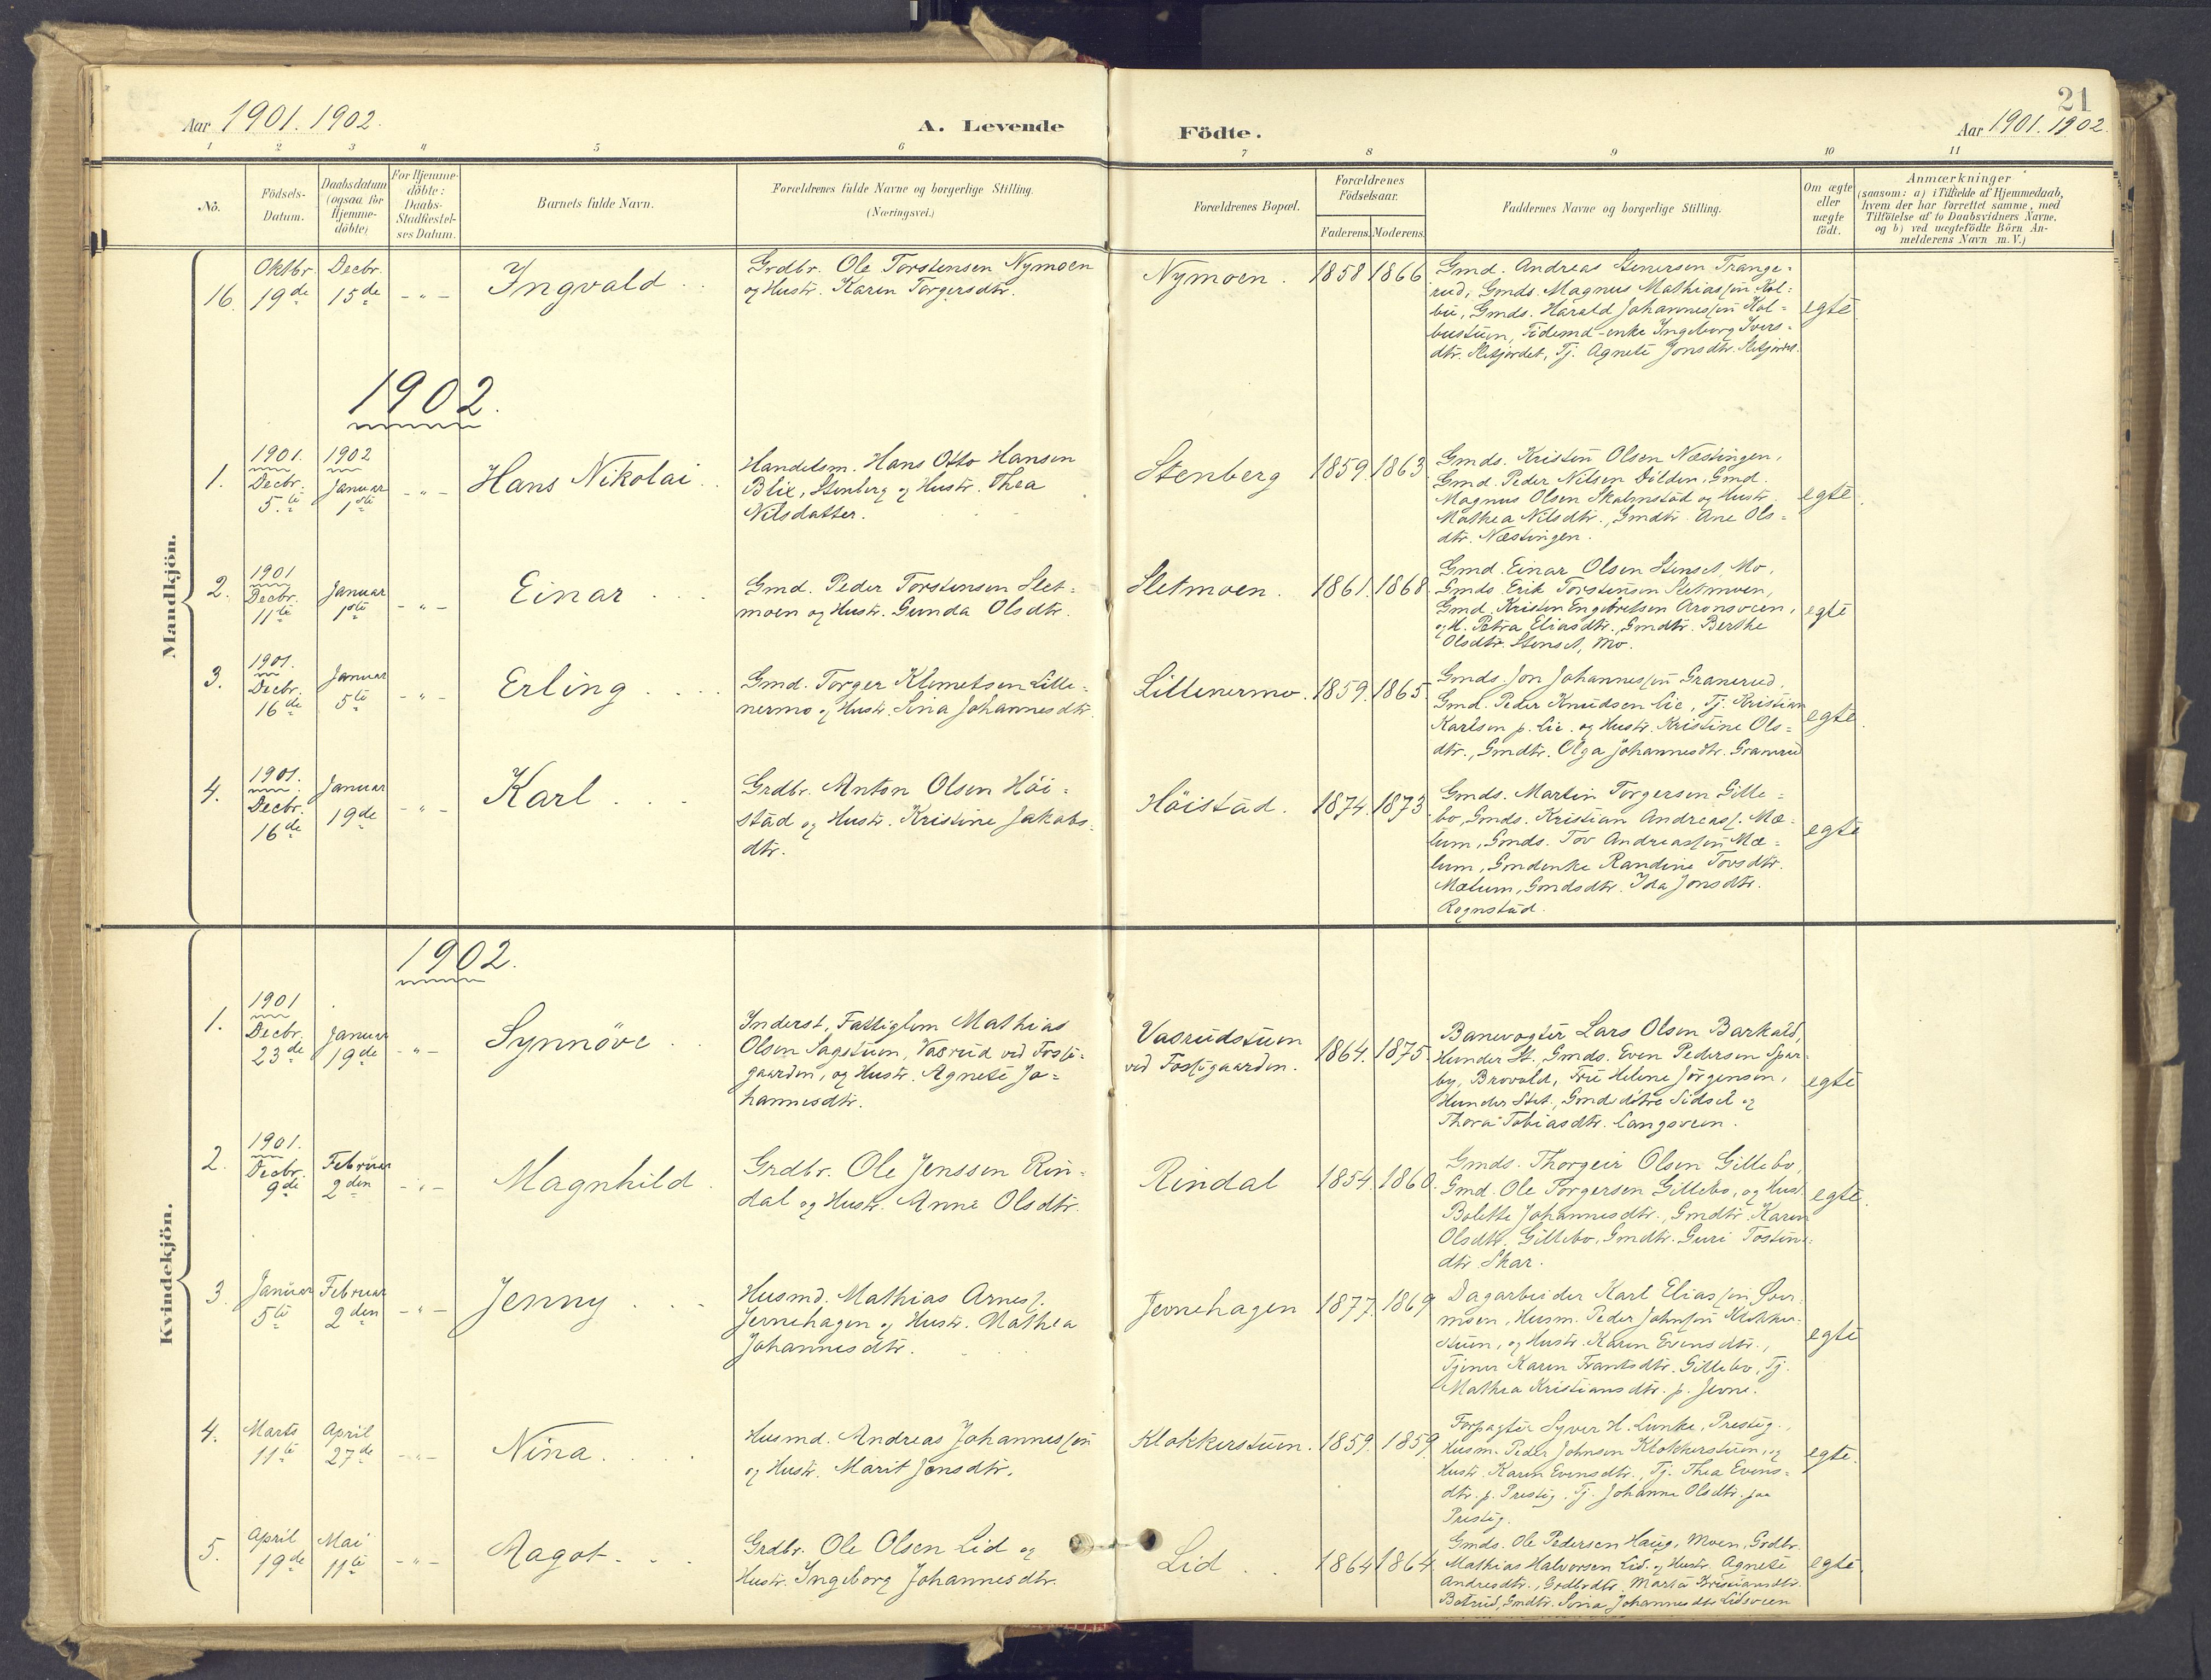 21
Aar 1901. 1902.
A. Levende
Födte.
Aar 1901. 1902.
1 2 3 4 5 6 7 8 9 10 11
No.
Födsels-
Datum.
Daabsdatum
(ogsaa for
Hjemme-
döbte)
For Hjemme-
döbte:
Daabs-
Stadfæstel-
ses Datum.
Barnets fulde Navn.
Forældrenes fulde Navne og borgerlige Stilling.
(Næringsvei.)
Forældrenes Bopæl.
Forældrenes
Födselsaar.
Faderens. Moderens.
Faddernes Navne og borgerlige Stilling.
Om ægte
eller
uægte
födt.
Anmærkninger
(saasom: a) i Tilfælde af Hjemmedaab,
hvem der har forrettet samme, med
Tilföielse af to Daabsvidners Navne.
og b) ved uægtefödte Börn An-
melderens Navn m. V.)
Mandkjön.
16.
Oktbr.
19de
Decbr.
15de
- " -
Ingvald
Grdbr. Ole Torstensen Nymoen
og Hustr. Karen Torgersdtr.
Nymoen.
1858 1866
Gmd. Andreas Stenersen Trange-
rud, Gmds. Magnus Mathiassen Kol-
bu, Gmds. Harald Johannessen Kol-
bustuen, Födemd-enke Ingeborg Ivers-
dtr. Sletjordet, Tj. Agnete Jonsdtr. Sletjordet.
egte
1902.
1.
1901.
Decbr.
5.te
1902
Januar
1ste
- " -
Hans Nikolai
Handelsm. Hans Otto Hansen
Blix, Stenberg og Hustr. Thea
Nilsdatter.
Stenberg
1859. 1863
Gmds. Kristen Olsen Næstingen,
Gmd. Peder Nilsen Dölden, Gmd.
Magnus Olsen Skalmstad og Hustr.
Mathea Nilsdtr., Gmdtr. Ane Ols-
dtr. Næstingen.
egte.
2.
1901
Decbr.
11te
Januar
1ste
- " -
Einar
Gmd. Peder Torstensen Slet-
moen og Hustr. Gunda Olsdtr.
Sletmoen.
1861. 1868
Gmd. Einar Olsen Stenset, Mo,
Gmds. Erik Torstensen Sletmoen,
Gmd. Kristen Engebretsen Aronsveen,
og H. Petra Eliasdtr., Gmdtr. Berthe
Olsdtr. Stenset, Mo.
egte
3.
1901.
Decbr.
16de
Januar
5te
- " -
Erling
Gmd. Torger Klemetsen Lille-
nermo og Hustr. Sina Johannesdtr.
Lillenermo.
1859. 1865
Gmds. Jon Johannessen Granerud,
Gmd. Peder Knudsen Lie, Tj. Kristian
Karlsen p. Lie. og Hustr. Kristine Ols-
dtr., Gmdtr. Olga Johannesdtr. Granerud
egte.
4.
1901.
Decbr.
16de
Januar
19de
- " -
Karl
Grdbr. Anton Olsen Höi-
stad og Hustr. Kristine Jakobs-
dtr.
Höistad.
1874. 1873
Gmds. Martin Torgersen Gille-
bo, Gmds. Kristian Andreass. Mæ-
lum, Gmds. Tov Andreassen Mæ-
lum, Gmdenke Randine Tovsdtr.
Mælum, Gmdsdtr. Ida Jonsdtr.
Rognstad.
egte
Kvindekjön.
1902.
1.
1901
Decbr.
23de
Januar
19de
- " -
Synnöve
Inderst, Fattiglem Mathias
Olsen Sagstuen, Vasrud ved Fosse-
gaarden, og Hustr. Agnete Jo-
hannesdtr.
Vasrudstuen
ved Fossegaarden.
1864. 1875.
Banevogter Lars Olsen Barkald,
Hunder St., Gmds. Even Pedersen Spar-
by, Brovold, Fru Helene Jörgensen,
Hunder Stat., Gmdsdötre Sidsel og
Thora Tobiasdtr. Langsveen.
egte
2.
1901.
Decbr.
9de
Februar
2den
- " -
Magnhild
Grdbr. Ole Jenssen Rin-
dal og Hustr. Anne Olsdtr.
Rindal
1854. 1860.
Gmds. Thorgeir Olsen Gillebo,
Gmd. Ole Torgersen Gillebo, og Hust.
Bolette Johannesdtr., Gmdtr. Karen
Olsdtr. Gillebo, Gmdtr. Guri Tostens-
dtr. Skar.
egte.
3.
Januar
5te
Februar
2den
- " -
Jenny
Husmd. Mathias Arness.
Jevnehagen og Hustr. Mathea
Johannesdtr.
Jevnehagen
1877. 1869
Dagarbeider Karl Eliassen Över-
moen, Husm. Peder Johnsen Klokker-
stuen, og Hustr. Karen Evensdtr.,
Tjener Karen Frantsdtr. Gillebo, Tj.
Mathea Kristiansdtr. p. Jevne.
egte
4.
Marts
11te
April
27de
- " -
Nina.
Husmd. Andreas Johannessen
og Hustr. Marit Jensdtr.
Klokkerstuen.
1859. 1859
Forpagter Syver H. Lunke, Presteg.,
Husm. Peder Johnsen Klokkerstuen, og
Hustr. Karen Evensdtr., Tj. Thea Evens-
dtr. p. Presteg. Tj. Johanne Olsdtr. paa
Presteg.
egte.
5.
April
19de
Mai
11te
- " -
Ragot
Grdbr. Ole Olsen Lid og
Hustr. Ingeborg Johannesdtr.
Lid
1864 1864.
Gmds. Ole Pedersen Haug, Moen, Grdbr.
Mathias Halvorsen Lid. og Hustr. Agnete
Andresdtr., Grdbrdtr. Martea Kristiansdtr.
Botrud, Gmdtr. Sina Johannesdtr Lidsveen
egte.